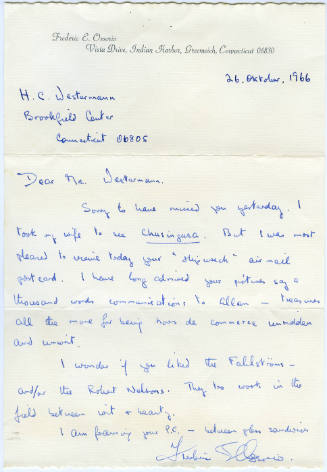 Frederic E. Ossorio
Vista Drive, Indian Harbor, Greenwich, Connecticut 06830
26, Oktober, 1966
H. C. Westermann
Brookfield Center
Connecticut 06805
Dear Mr. Westermann.
Sorry to have missed you yesterday. I
took my wife to see Chusingura. But I was most
pleased to receive today your "shipwreck" air mail
post card. I have long admired your pictures say a
thousand words communications to Allan – treasures
all the more for being hors de commerce unbidden
and unwrit.
I wonder if you liked the Fahlströms –
and/or the Robert Nelsons. They too work in the
field between wit & beauty.
I am framing your P.C. – between glass sandwich
Frederic E. Ossorio.